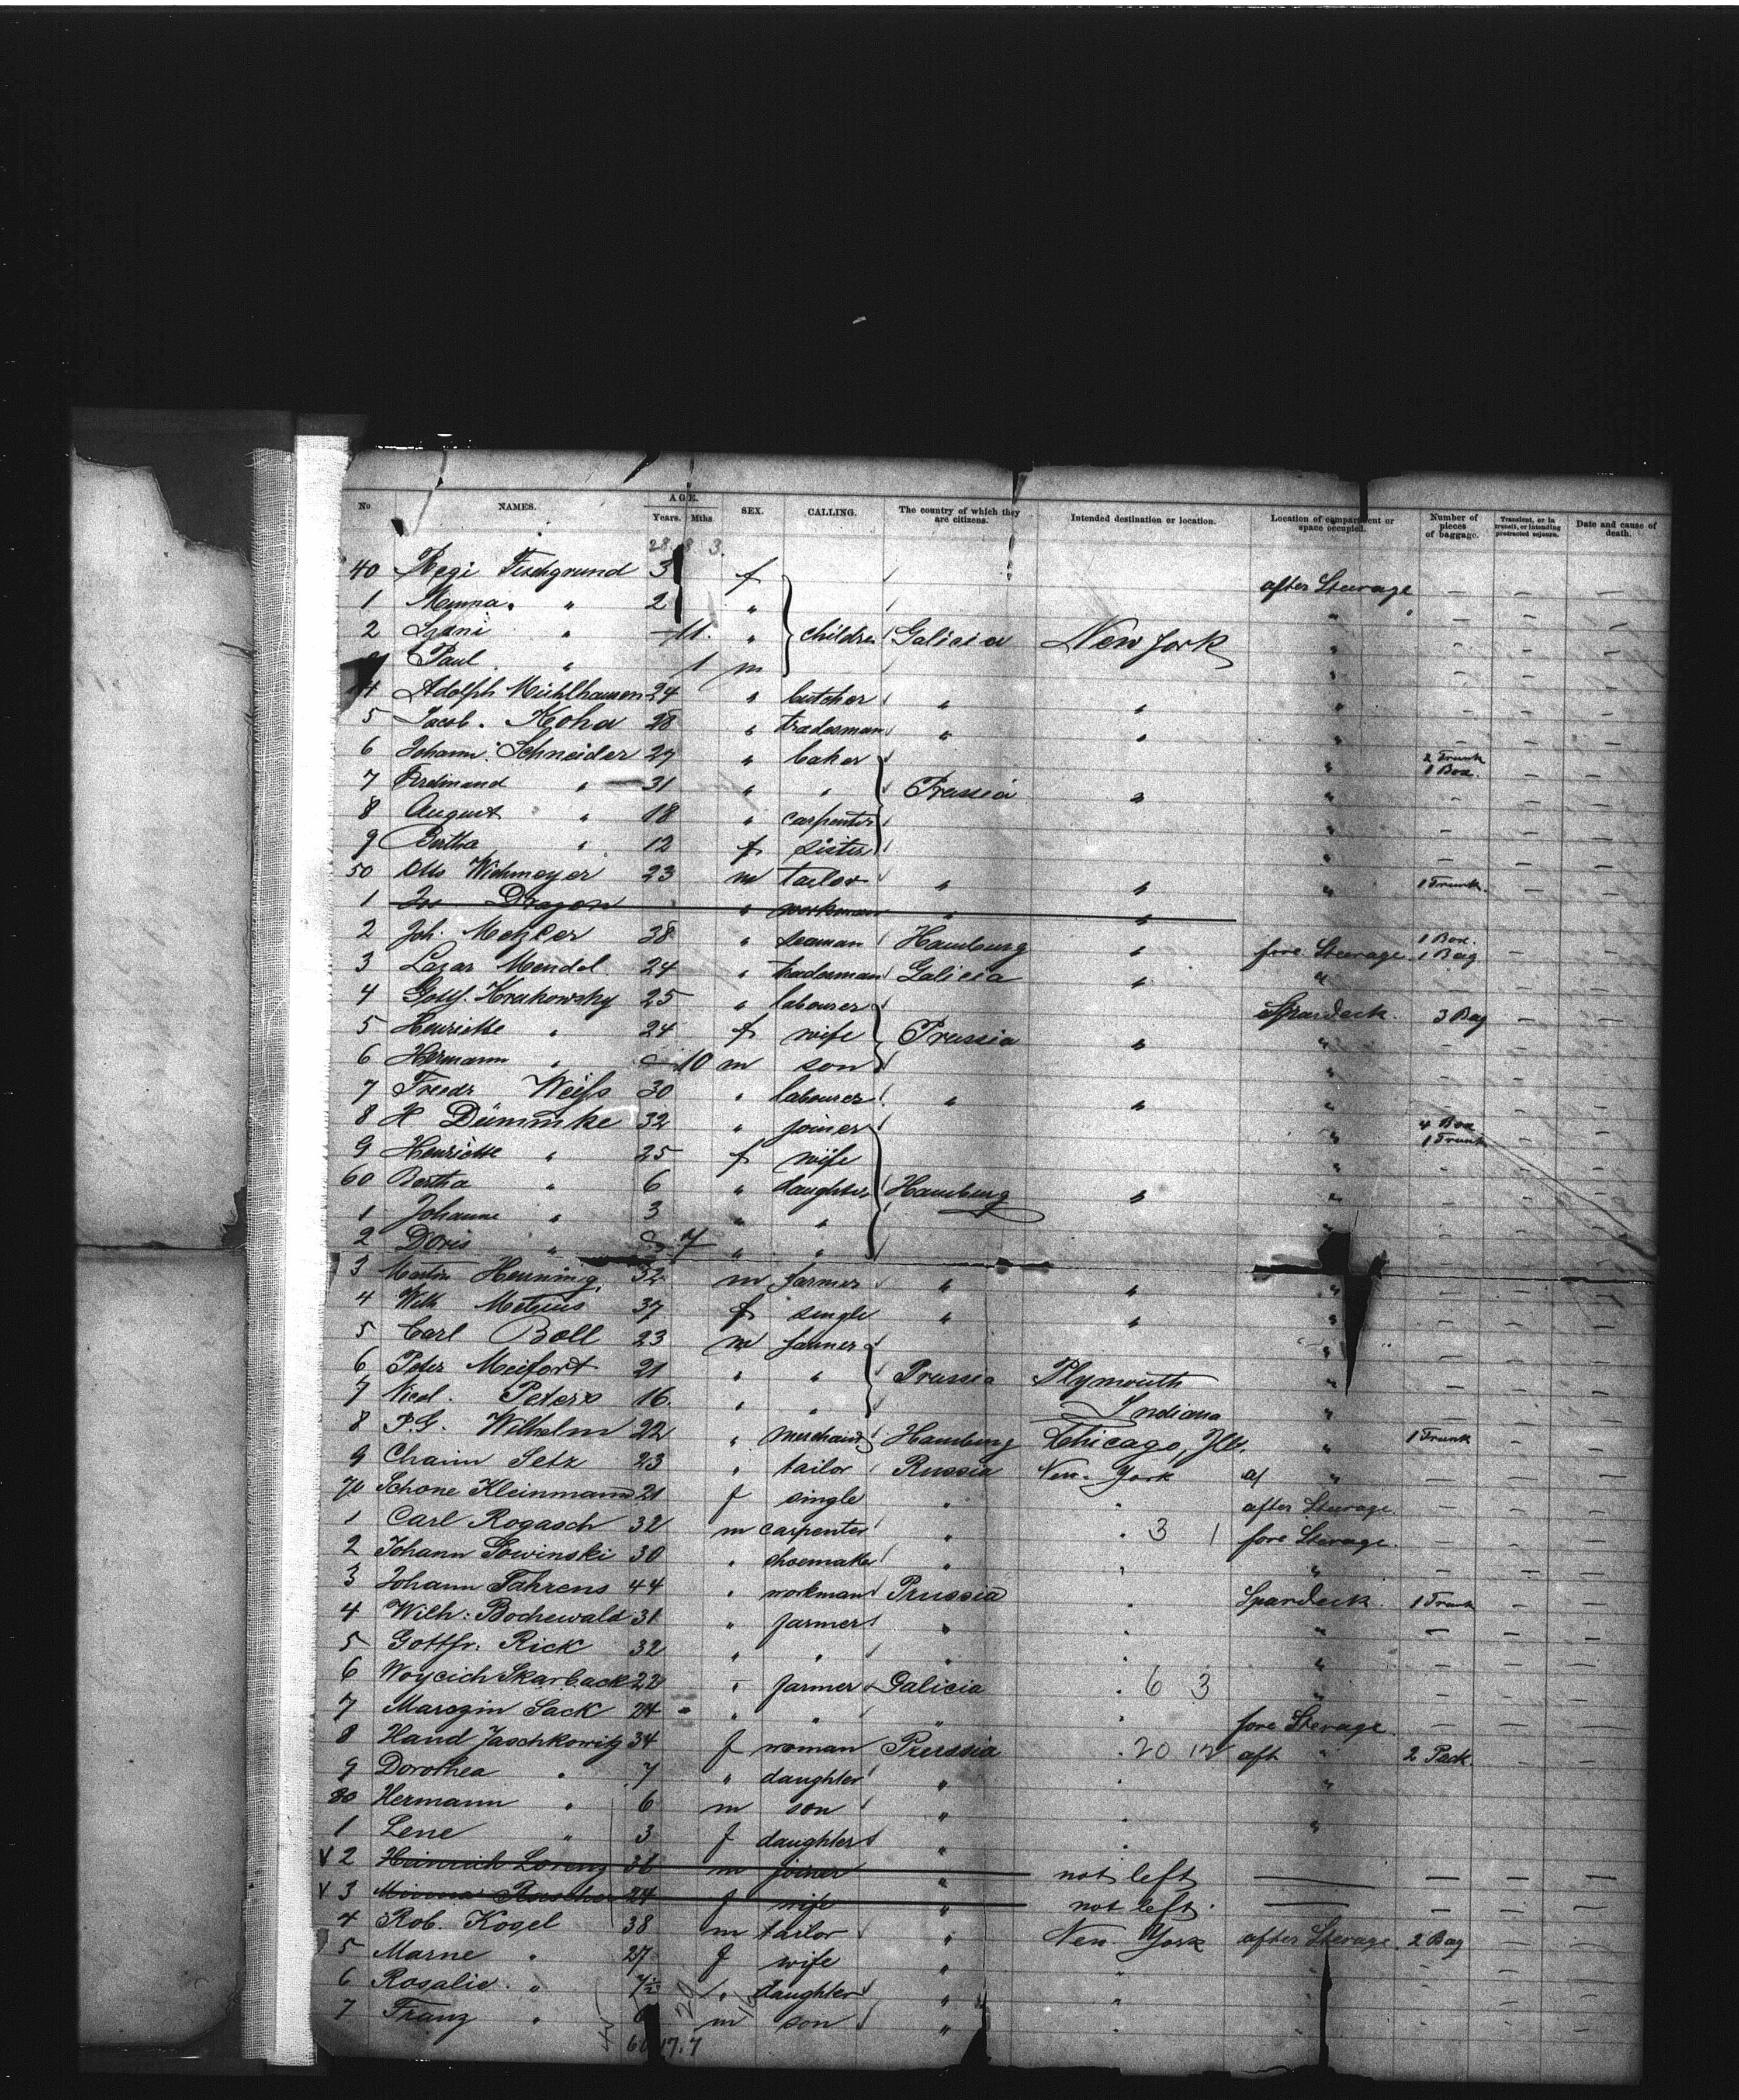 No NAMES. AGE. Years. Mths. SEX. CALLING. The country of which they are citizens. Intended destination or location. Location of compartment or space occupied. Number of pieces of baggage. Transient, or in transit, or intending protracted sojourn. Date and cause of death.
28 8 3.
40 Regi Fischgrund 3 f after Steerage — — —
1 Menna " 2 " " — — —
2 " — 11. " children Galicia New York " — — —
Paul " 1 m " — — —
4 Adolph Mühlhausen 24 " butcher " " " — — —
5 Jacob. Koha 28 " tradesman " " " — — —
6 Johann Schneider 27 " baker " 2 Trunk 1 Box. — —
7 Ferdinand " 31 " " Prussia " " — — —
8 August " 18 " carpenter " — — —
9 Bertha " 12 f sister " — — —
50 Otto Wichmeyer 23 m tailor " " " 1 Trunk. — —
1 Jos Dragon " workman " "
2 Joh. Metzler 38 " seaman Hamburg " fore Steerage 1 Box. 1 Bag — —
3 Lazar Mendel 24 " tradesman Galicia " " — — —
4 Gottf. Krakowsky 25 " labourer Spardeck. 3 Bag — —
5 Henriette " 24 f wife Prussia " " — — —
6 Hermann " 10 m son " — — —
7 Friedr Weiss 30 " labourer " " " — — —
8 H Dümmke 32 " joiner " 4 Box 1 Trunk — —
9 Henriette " 25 f wife " — — —
60 Bertha " 6 " daughter Hamburg " " — — —
1 Johanne " 3 " " " — — —
2 Doris " 7 " "
3 Martin Henning 32 m farmer " " " — — —
4 Wilh Meteus 37 f single " " " — — —
5 Carl Boll 23 m farmer " — — —
6 Peter Meifort 21 " " Prussia Plymouth " — — —
7 Nicol. Peters 16. " " Indiana " — — —
8 P.G. Wilhelm 22 " merchand Hamburg Chicago, Ill. " 1 Trunk — —
9 Chaim Setz 23 " tailor Russia New-York a/ " — — —
70 Schone Kleinmann 21 f single " " after Steerage. — — —
1 Carl Rogasch 32 m carpenter " " 3 1 fore Sterage. — — —
2 Johann Sowinski 30 " shoemaker " " " — — —
3 Johann Fahrens 44 " workman Prussia " Spardeck. 1 Trunk — —
4 Wilh: Bochewald 31 " farmer " " " — — —
5 Gottfr: Rick 32 " " " " " — — —
6 Woycich Skarback 22 " farmer Galicia " 6 3 " — — —
7 Marczin Sack 24 " " " " fore Sterage — — —
8 Hand Jaschkowitz 34 f woman Prussia " 20 12 aft " 2 Pack. — —
9 Dorothea " 7 " daughter " " " — — —
80 Hermann " 6 m son " " " — — —
1 Lene " 3 f daughter " " — — —
V 2 Heinrich Lorenz 36 m joiner " not left — — — —
V 3 24 f wife " not left. — — — —
4 Rob. Kogel 38 m tailor " New York after Sterage 2 Bag — —
5 Marne " 27 f wife " " " — — —
6 Rosalie " 7½ " daughter " " " — — —
7 Franz " 6 m son " " " — — —
20 16
17.7